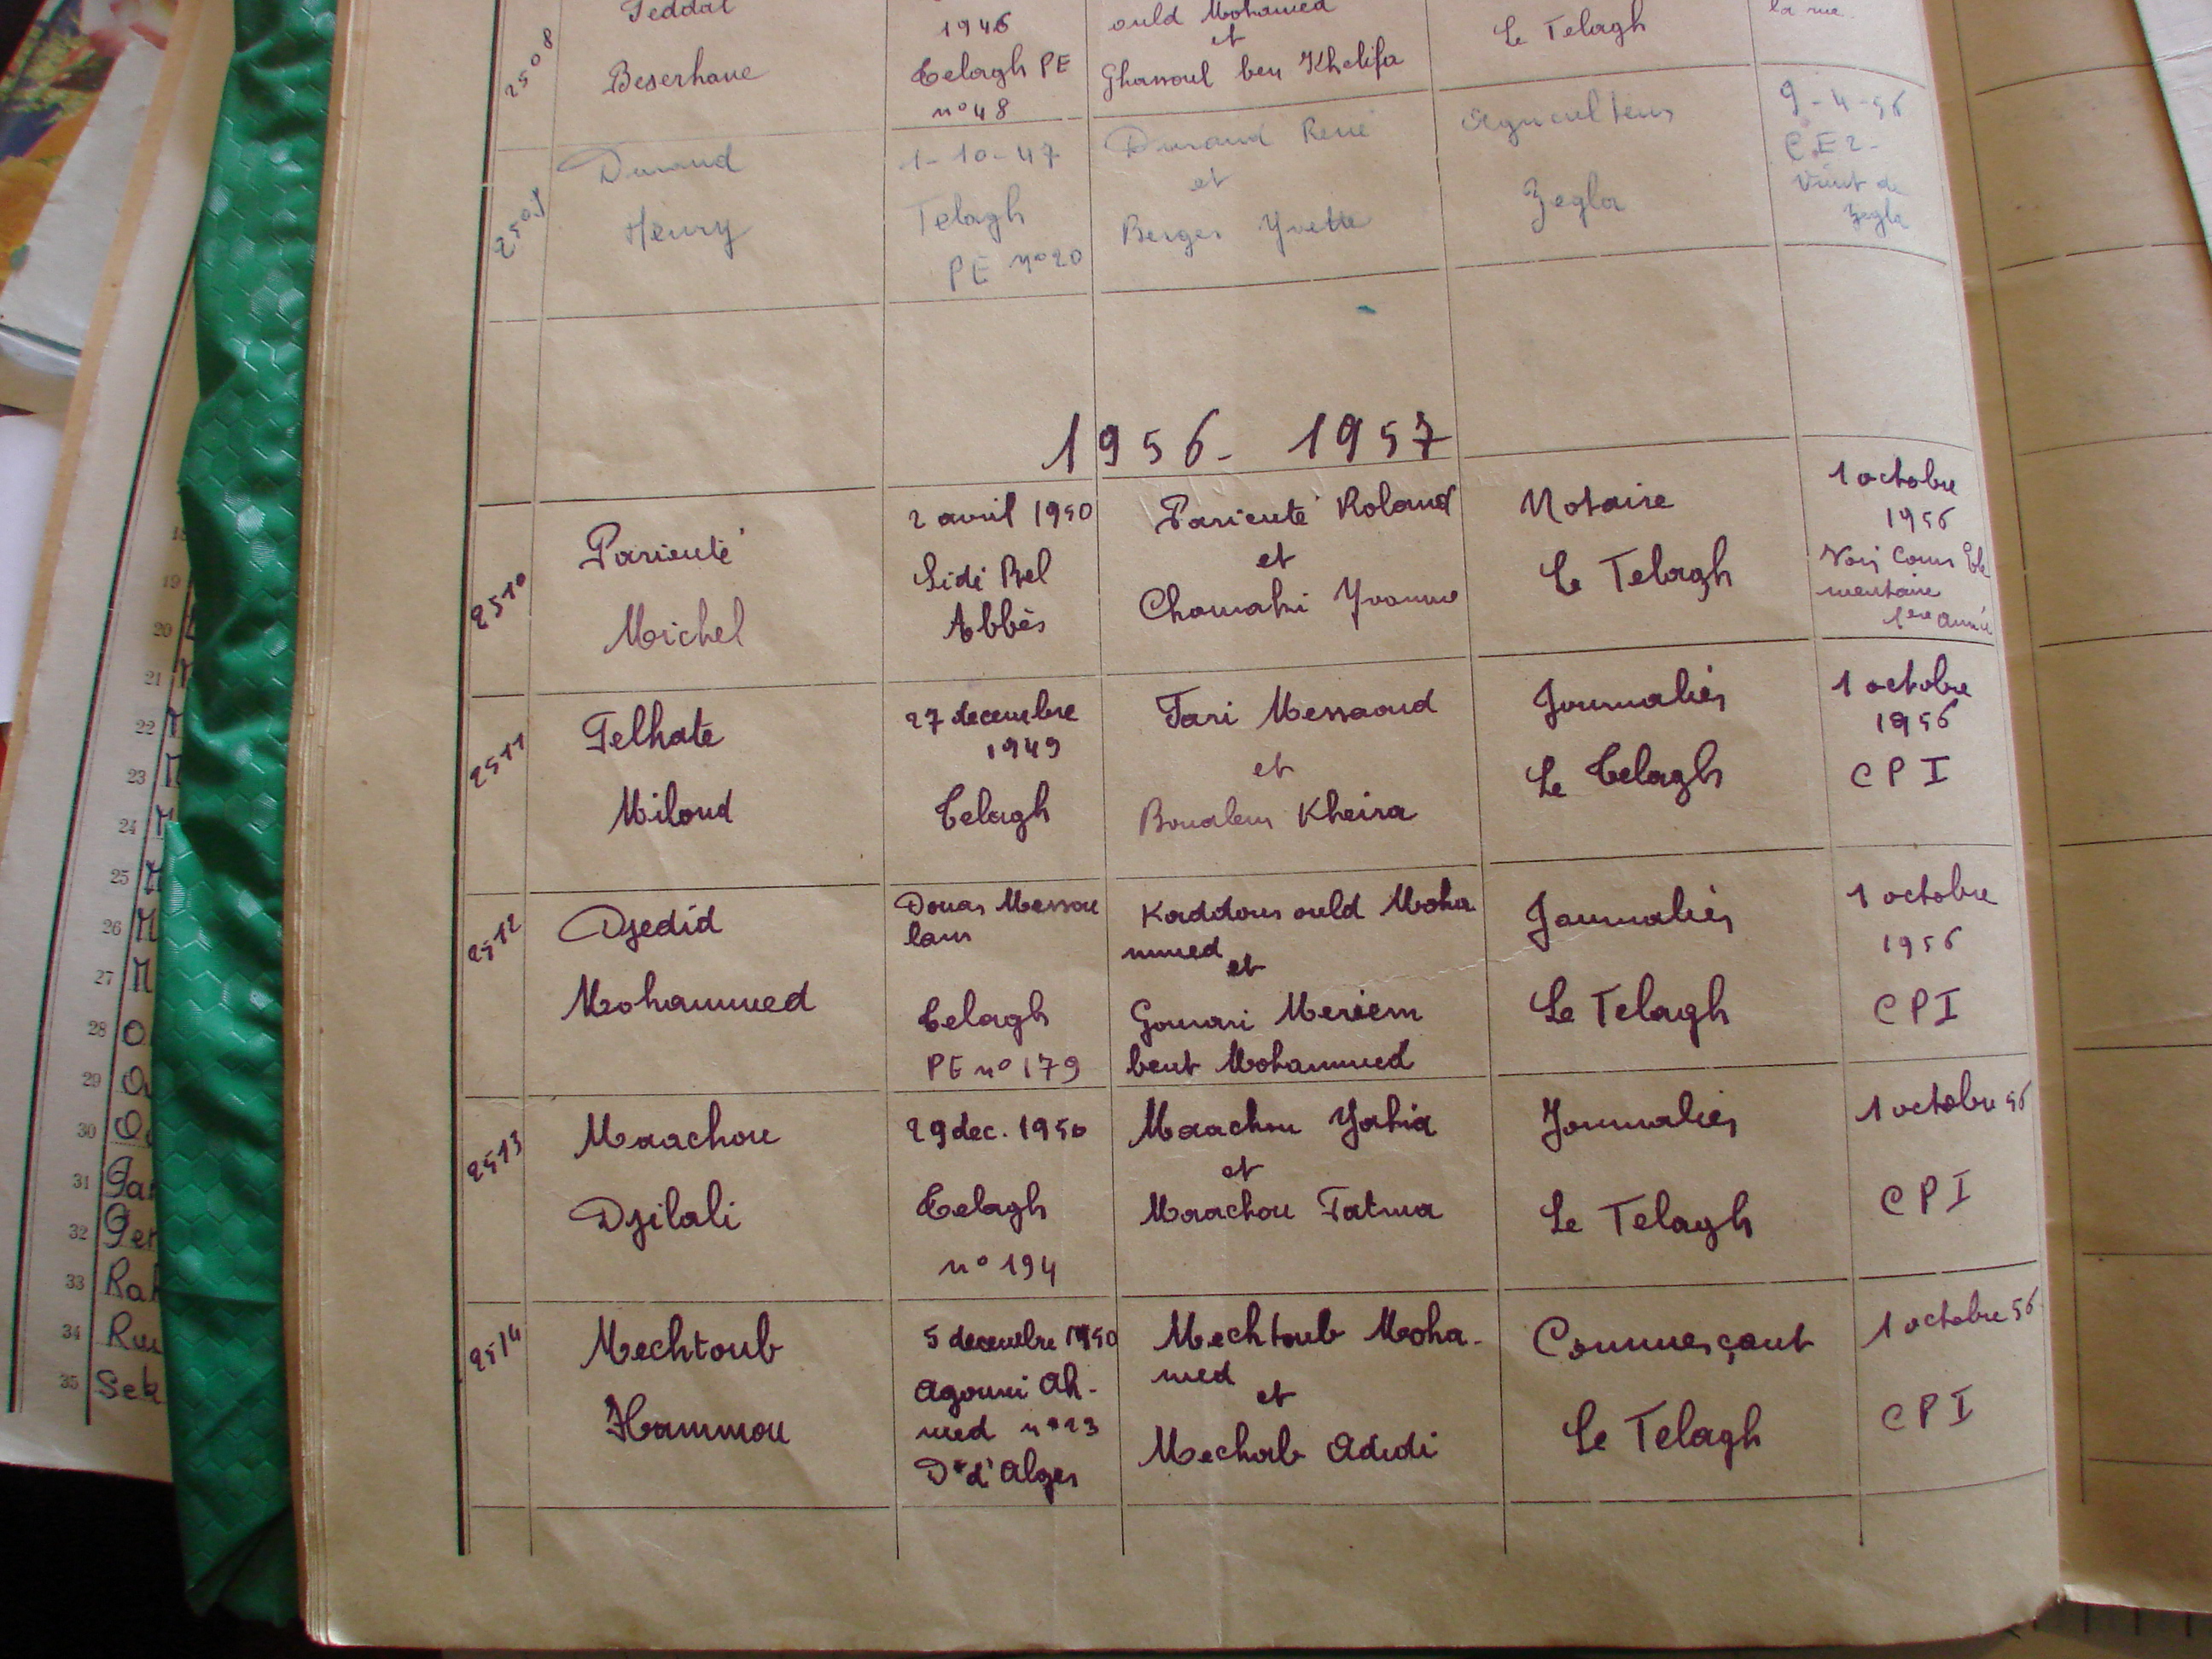 2508
Feddal
Beserhane
1946
Telagh PE
n° 48
ould Mohamed
et
Ghassoul ben Khelifa
Le Telagh
la rue
2509
Durand
Henry
1-10-47
Telagh
PE n° 20
Durand René
et
Berger Yvette
Agriculteur
Zegla
9-4-56
CE2-
Vient de
Zegla
1956- 1957
2510
Parienté
Michel
2 avril 1950
Sidi Bel
Abbès
Parienté Roland
et
Yvonne
Notaire
Le Telagh
1 octobre
1956
Cours Elé
mentaire
1ere année
2511
Telhate
Miloud
27 decembre
1949
Telagh
Tari Messaoud
et
Boualem Kheira
Journalier
Le Telagh
1 octobre
1956
CPI
2512
Djedid
Mohammed
Douar Messou
lan
Telagh
PE n° 179
Kaddour ould Moha
mmed
et
Gomari Meriem
bent Mohammed
Journalier
Le Telagh
1 octobre
1956
CPI
2513
Maachou
Djilali
29 dec. 1950
Telagh
n° 194
Maachou Yahia
et
Maachou Fatma
Journalier
Le Telagh
1 octobre 56
CPI
2514
Mechtoub
Hammou
5 decembre 1950
Agouni Ah-
med n° 23
Dt d'Alger
Mechtoub Moha-
med
et
Mechab Adidi
Commerçant
Le Telagh
1 octobre 56
CPI
19
20
21
22
23
24
25
26
27
28
29
30
31 Par
32 Per
33
34
35 Sek